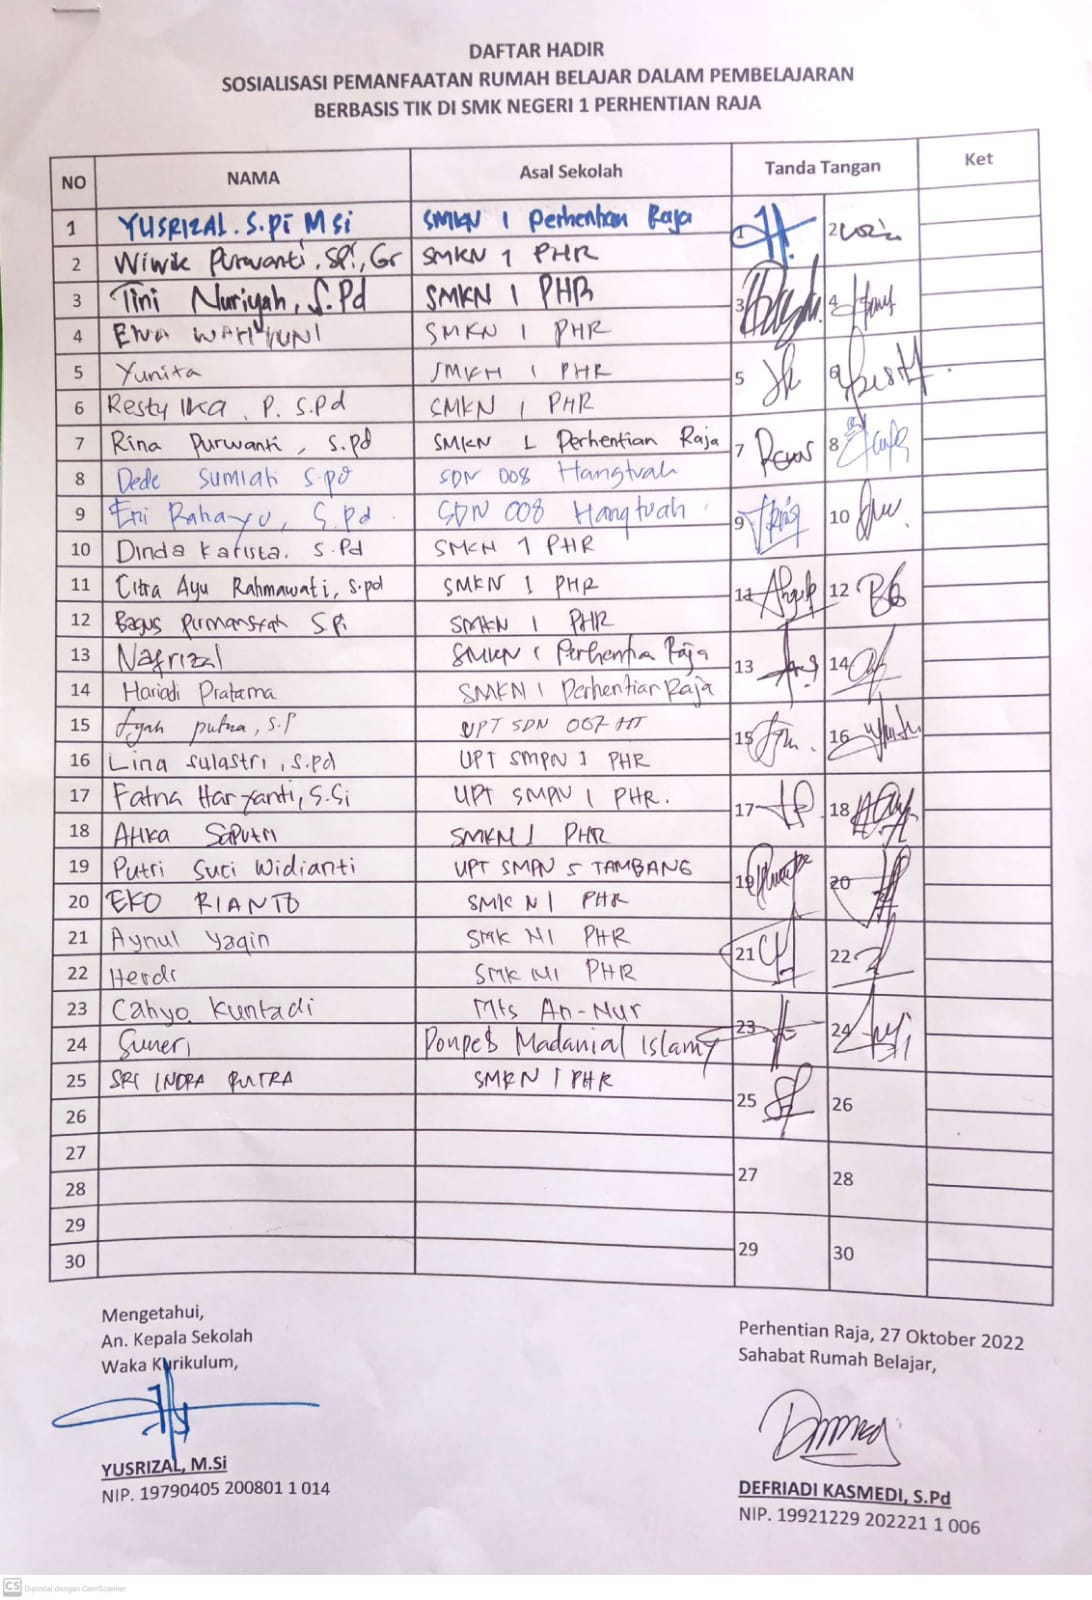 DAFTAR HADIR
SOSIALISASI PEMANFAATAN RUMAH BELAJAR DALAM PEMBELAJARAN
BERBASIS TIK DI SMK NEGERI 1 PERHENTIAN RAJA
NO NAMA Asal Sekolah Tanda Tangan Ket
1 YUSRIZAL. S.Pi M Si SMKN 1 Perhentian Raja 1 2
2 Wiwik Purwanti, SPi, Gr SMKN 1 PHR
3 Tini Nuriyah, S.Pd SMKN 1 PHR 3 4
4 WAHYUNI SMKN 1 PHR
5 Yunita SMKN 1 PHR 5 6
6 Resty IKA. P. S.Pd SMKN 1 PHR
7 Rina Purwanti, S.Pd SMKN 1 Perhentian Raja 7 8
8 Dede Sumiati S.Pd SDN 008 Hangtuah
9 Eni Rahayu, S.Pd. SDN 008 Hangtuah 9 10
10 Dinda Karista. S.Pd SMKN 1 PHR
11 Citra Ayu Rahmawati, S.pd SMKN 1 PHR 11 12
12 Bagus Pirmansyah S.Pi SMKN 1 PHR
13 Nafrizal SMKN 1 Perhentia Raja 13 14
14 Hariadi Pratama SMKN 1 Perhentian Raja
15 putra, S.P UPT SDN 007 HT 15 16
16 Lina Sulastri, S.pd UPT SMPN 1 PHR
17 Fatna Haryanti, S.Si UPT SMPN 1 PHR. 17 18
18 Atika Saputri SMKN 1 PHR
19 Putri Suci Widianti UPT SMPN 5 TAMBANG 19 20
20 EKO RIANTO SMK N1 PHR
21 Aynul Yaqin SMK N1 PHR 21 22
22 Herdi SMK N1 PHR
23 Cahyo Kuntadi Mts An-Nur 23 24
24 Suneri Ponpes Madanial Islamy
25 SRI INDRA PUTRA SMKN 1 PHR 25 26
26
27 27 28
28
29 29 30
30
Mengetahui,
An. Kepala Sekolah
Waka Kurikulum,
YUSRIZAL, M.Si
NIP. 19790405 200801 1 014
Perhentian Raja, 27 Oktober 2022
Sahabat Rumah Belajar,
DEFRIADI KASMEDI, S.Pd
NIP. 19921229 202221 1 006
CS Dipindai dengan CamScanner